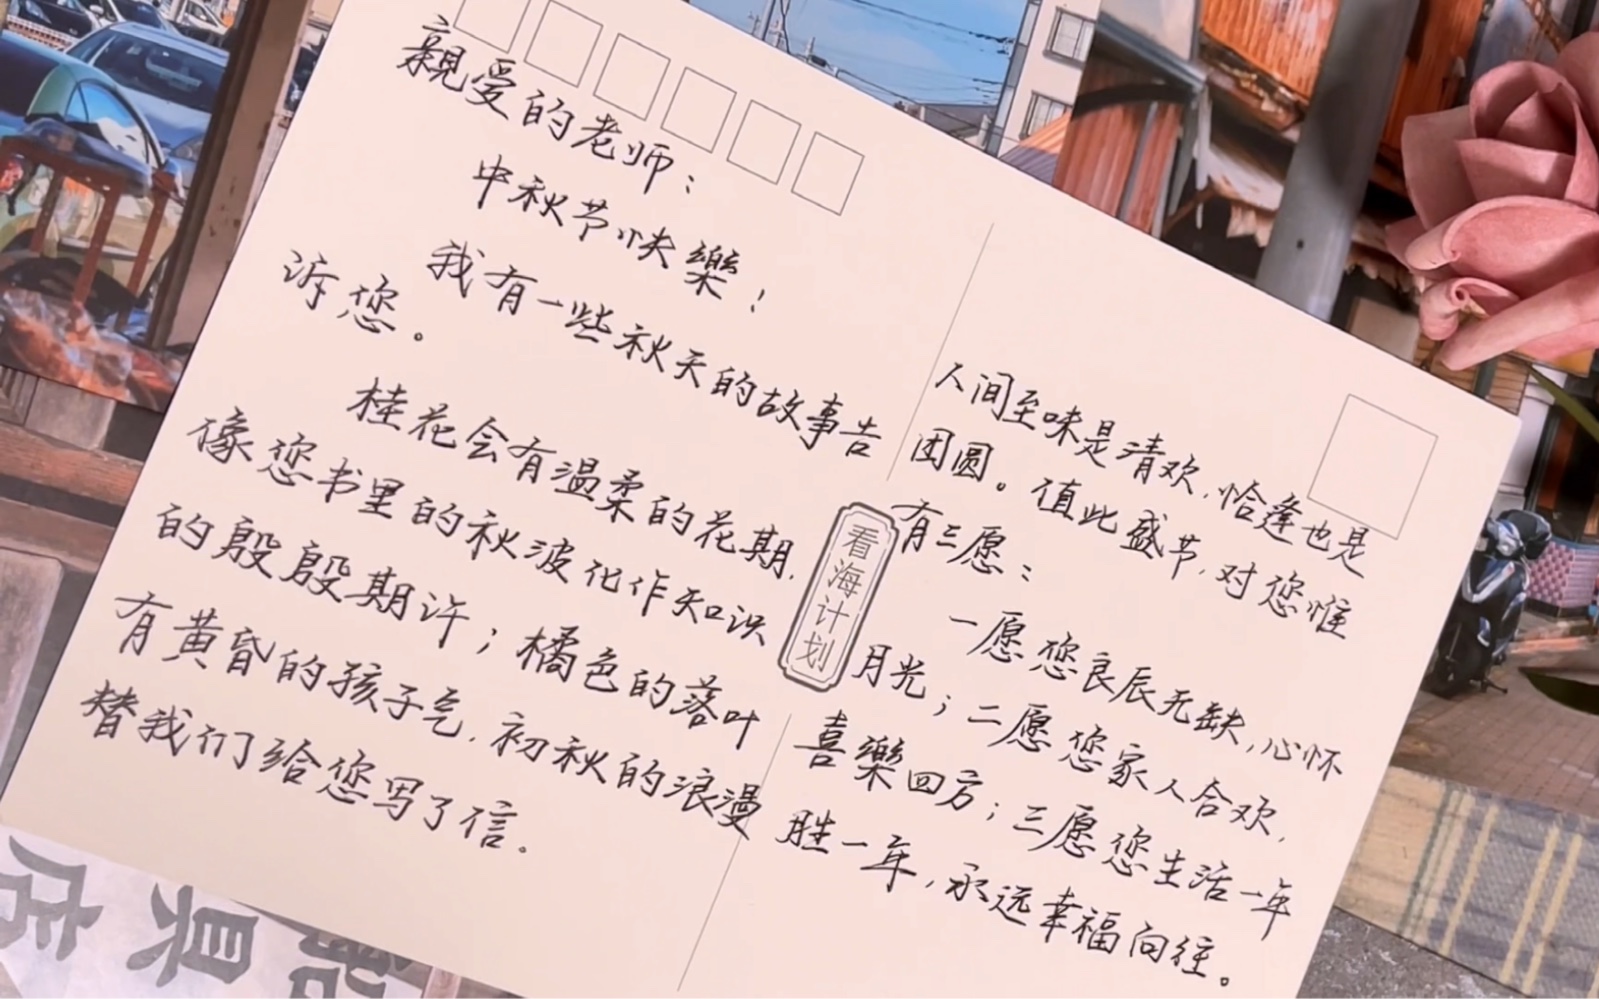 親爱的老师：
中秋节快樂！
我有一些秋天的故事告
诉您。
桂花会有温柔的花期，
像您书里的秋波化作知识
的殷殷期许；橘色的落叶
有黄昏的孩子气，初秋的浪漫
替我们给您写了信。
人间至味是清欢，恰逢也是
团圆。值此盛节，对您惟
有三愿：
一愿您良辰无缺，心怀
月光；二愿您家人合欢，
喜樂四方；三愿您生活一年
胜一年，永远幸福向往。
看海计划
船具店